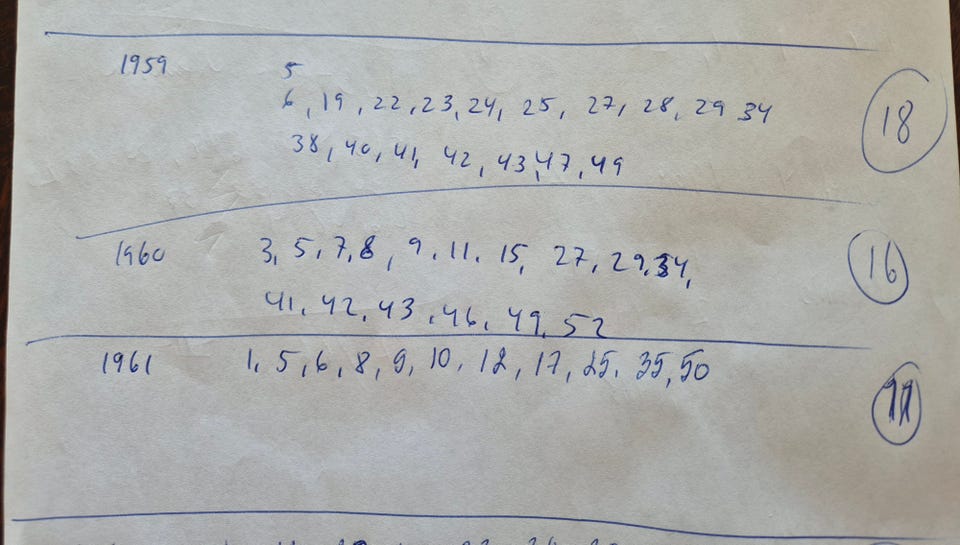 1959 5
6, 19, 22, 23, 24, 25, 27, 28, 29 34 18
38, 40, 41, 42, 43, 47, 49
1960 3, 5, 7, 8, 9, 11. 15, 27, 29, 34, 16
41, 42, 43, 46, 49, 52
1961 1, 5, 6, 8, 9, 10, 12, 17, 25, 35, 50
11